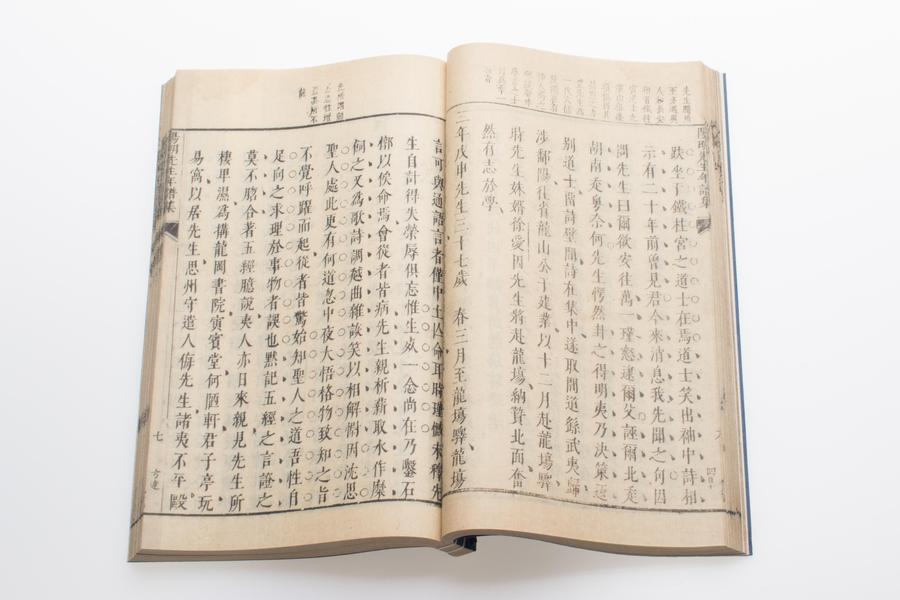 陽明先生年譜集
趺坐于鐵柱宮之道士在焉道士笑出袖中詩相
示有二十年前曾見君今來消息我先聞之句因
問先生曰爾欲安往萬一瑾怒逮爾父誣爾北走
胡南走粵奈何先生愕然卦之得明夷乃決策返
別道士留詩壁間詩在集中遂取間道繇武夷歸
涉鄱陽往省龍山公于建業以十二月赴龍場驛
時先生妹婿徐愛因先生將赴龍場納贄北面奮
然有志於學
三年戊申先生三十七歲 春三月至龍場驛龍場
言可與通語言者僅中土亡命耳時瑾憾未釋先
生自計得失榮辱俱忘惟生死一念尚在乃鑿石
槨以俟命焉會從者皆病先生親析薪取水作糜
飼之又為歌詩調越曲雜談笑以相解慰因沈思
聖人處此更有何道忽中夜大悟格物致知之旨
不覺呼躍而起從者皆驚始知聖人之道吾性自
足向之求理於事物者誤也默記五經之言證之
莫不脗合著五經臆說夷人亦日來親見先生所
棲卑濕為構龍岡書院寅賓堂何陋軒君子亭玩
易窩以居先生思州守遣人侮先生諸夷不平毆
陽明先生年譜集
七